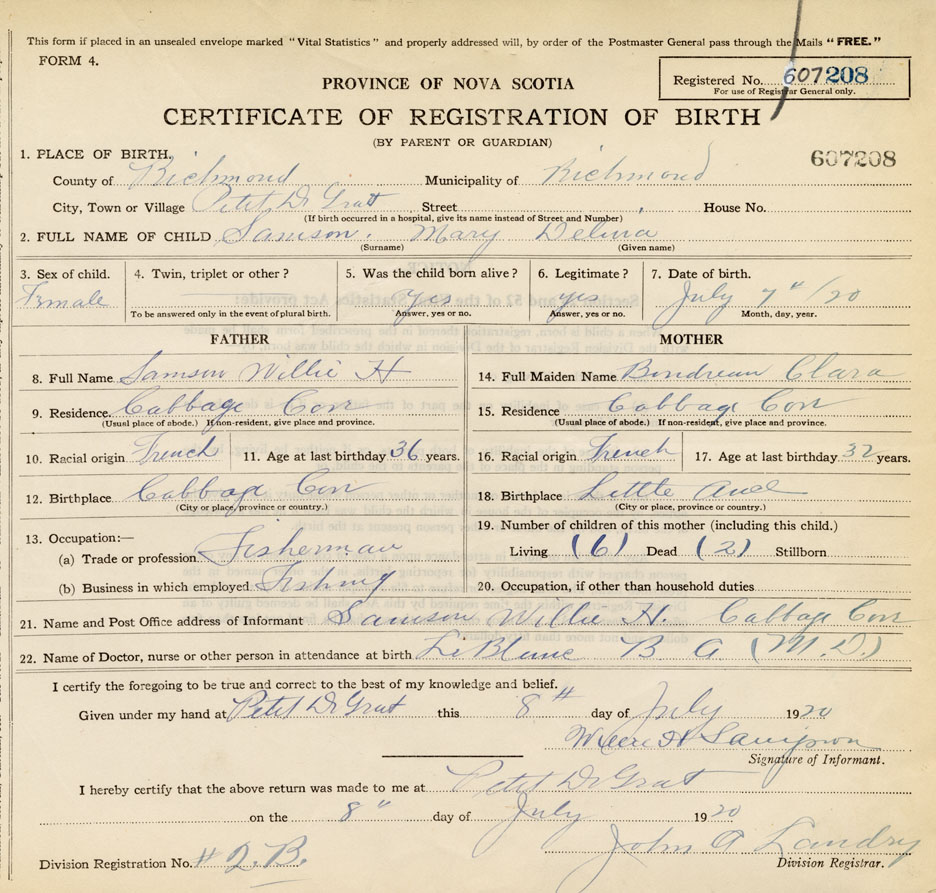 This form if placed in an unsealed envelope marked "Vital Statistics" and properly addressed will, by order of the Postmaster General pass through the Mails "FREE."
FORM 4.
Registered No. 607208
For use of Registrar General only.
PROVINCE OF NOVA SCOTIA
CERTIFICATE OF REGISTRATION OF BIRTH
(BY PARENT OR GUARDIAN)
607208
1. PLACE OF BIRTH.
County of Richmond Municipality of Richmond
City, Town or Village Petit De Grat Street House No.
(If birth occurred in a hospital, give its name instead of Street and Number)
2. FULL NAME OF CHILD Samson. Mary Delina
(Surname) (Given name)
3. Sex of child. 4. Twin, triplet or other? 5. Was the child born alive? 6. Legitimate? 7. Date of birth.
Female yes yes July 7"/20
To be answered only in the event of plural birth. Answer, yes or no. Answer, yes or no. Month, day, year.
FATHER MOTHER
8. Full Name Samson Willie H 14. Full Maiden Name Boudreau Clara
9. Residence. Cabbage Cov 15. Residence Cabbage Cov
(Usual place of abode.) If non-resident, give place and province. (Usual place of abode.) If non-resident, give place and province.
10. Racial origin French 11. Age at last birthday 36 years. 16. Racial origin French 17. Age at last birthday 32 years.
12. Birthplace Cabbage Cov 18. Birthplace Little Anse
(City or place, province or country.) (City or place, province or country.)
13. Occupation:— 19. Number of children of this mother (including this child.)
(a) Trade or profession Fisherman Living (6) Dead (2) Stillborn
(b) Business in which employed Fishing 20. Occupation, if other than household duties
21. Name and Post Office address of Informant Samson Willie H. Cabbage Cov
22. Name of Doctor, nurse or other person in attendance at birth LeBlanc B A (M.D.)
I certify the foregoing to be true and correct to the best of my knowledge and belief.
Given under my hand at Petit De Grat this 8" day of July 1920
Willie H Sampson
Signature of Informant.
I hereby certify that the above return was made to me at Petit De Grat
on the 8" day of July 1920
John A Landry
Division Registration No. # 2. B. Division Registrar.